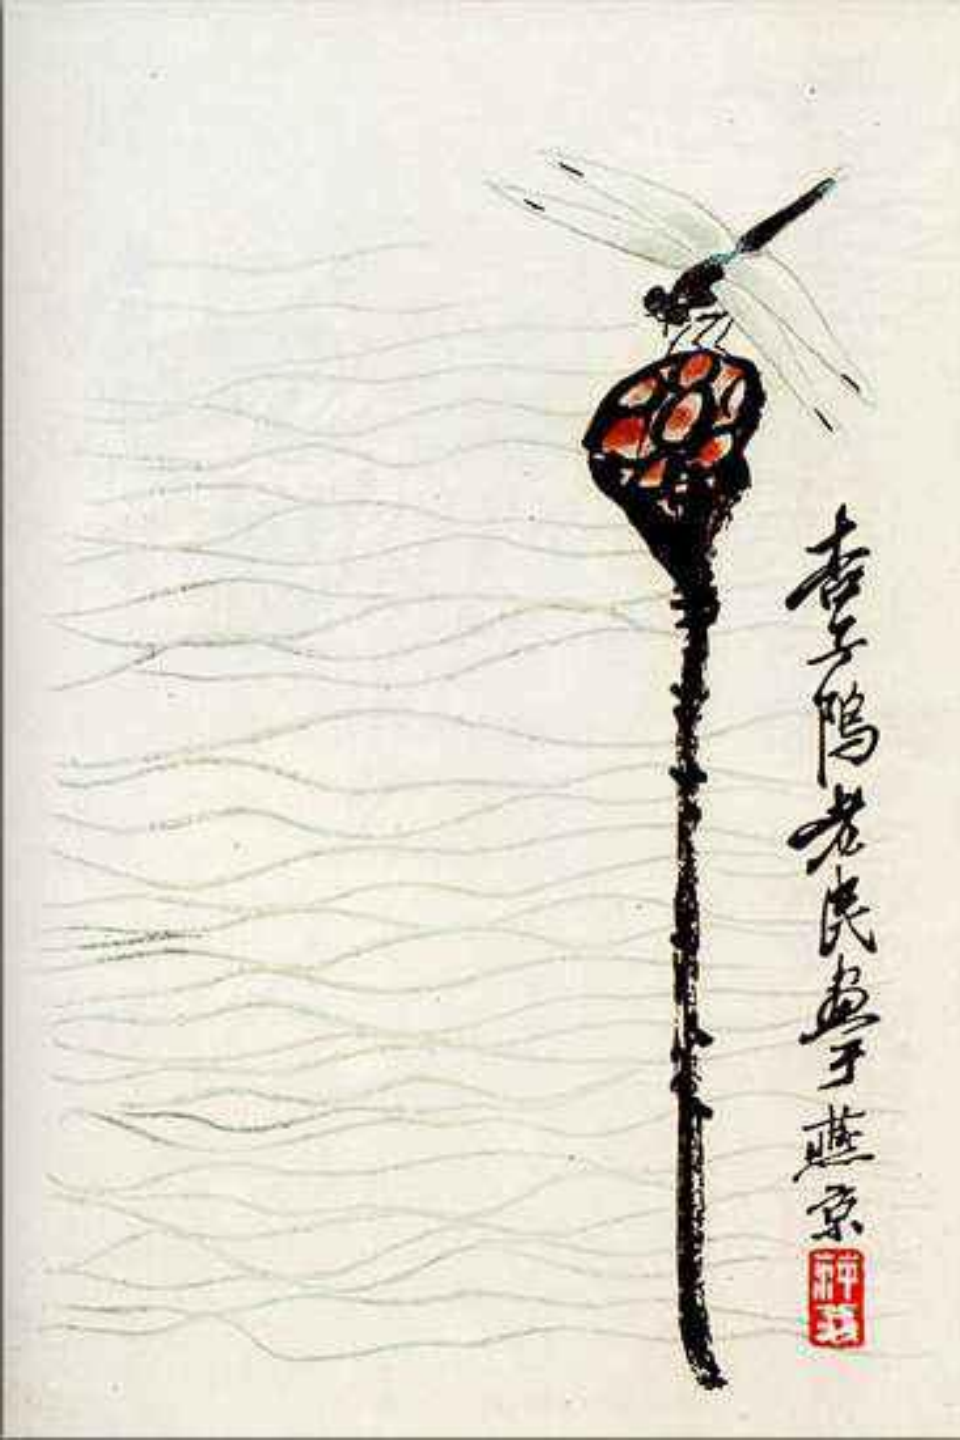 杏子隖老民畫于燕京